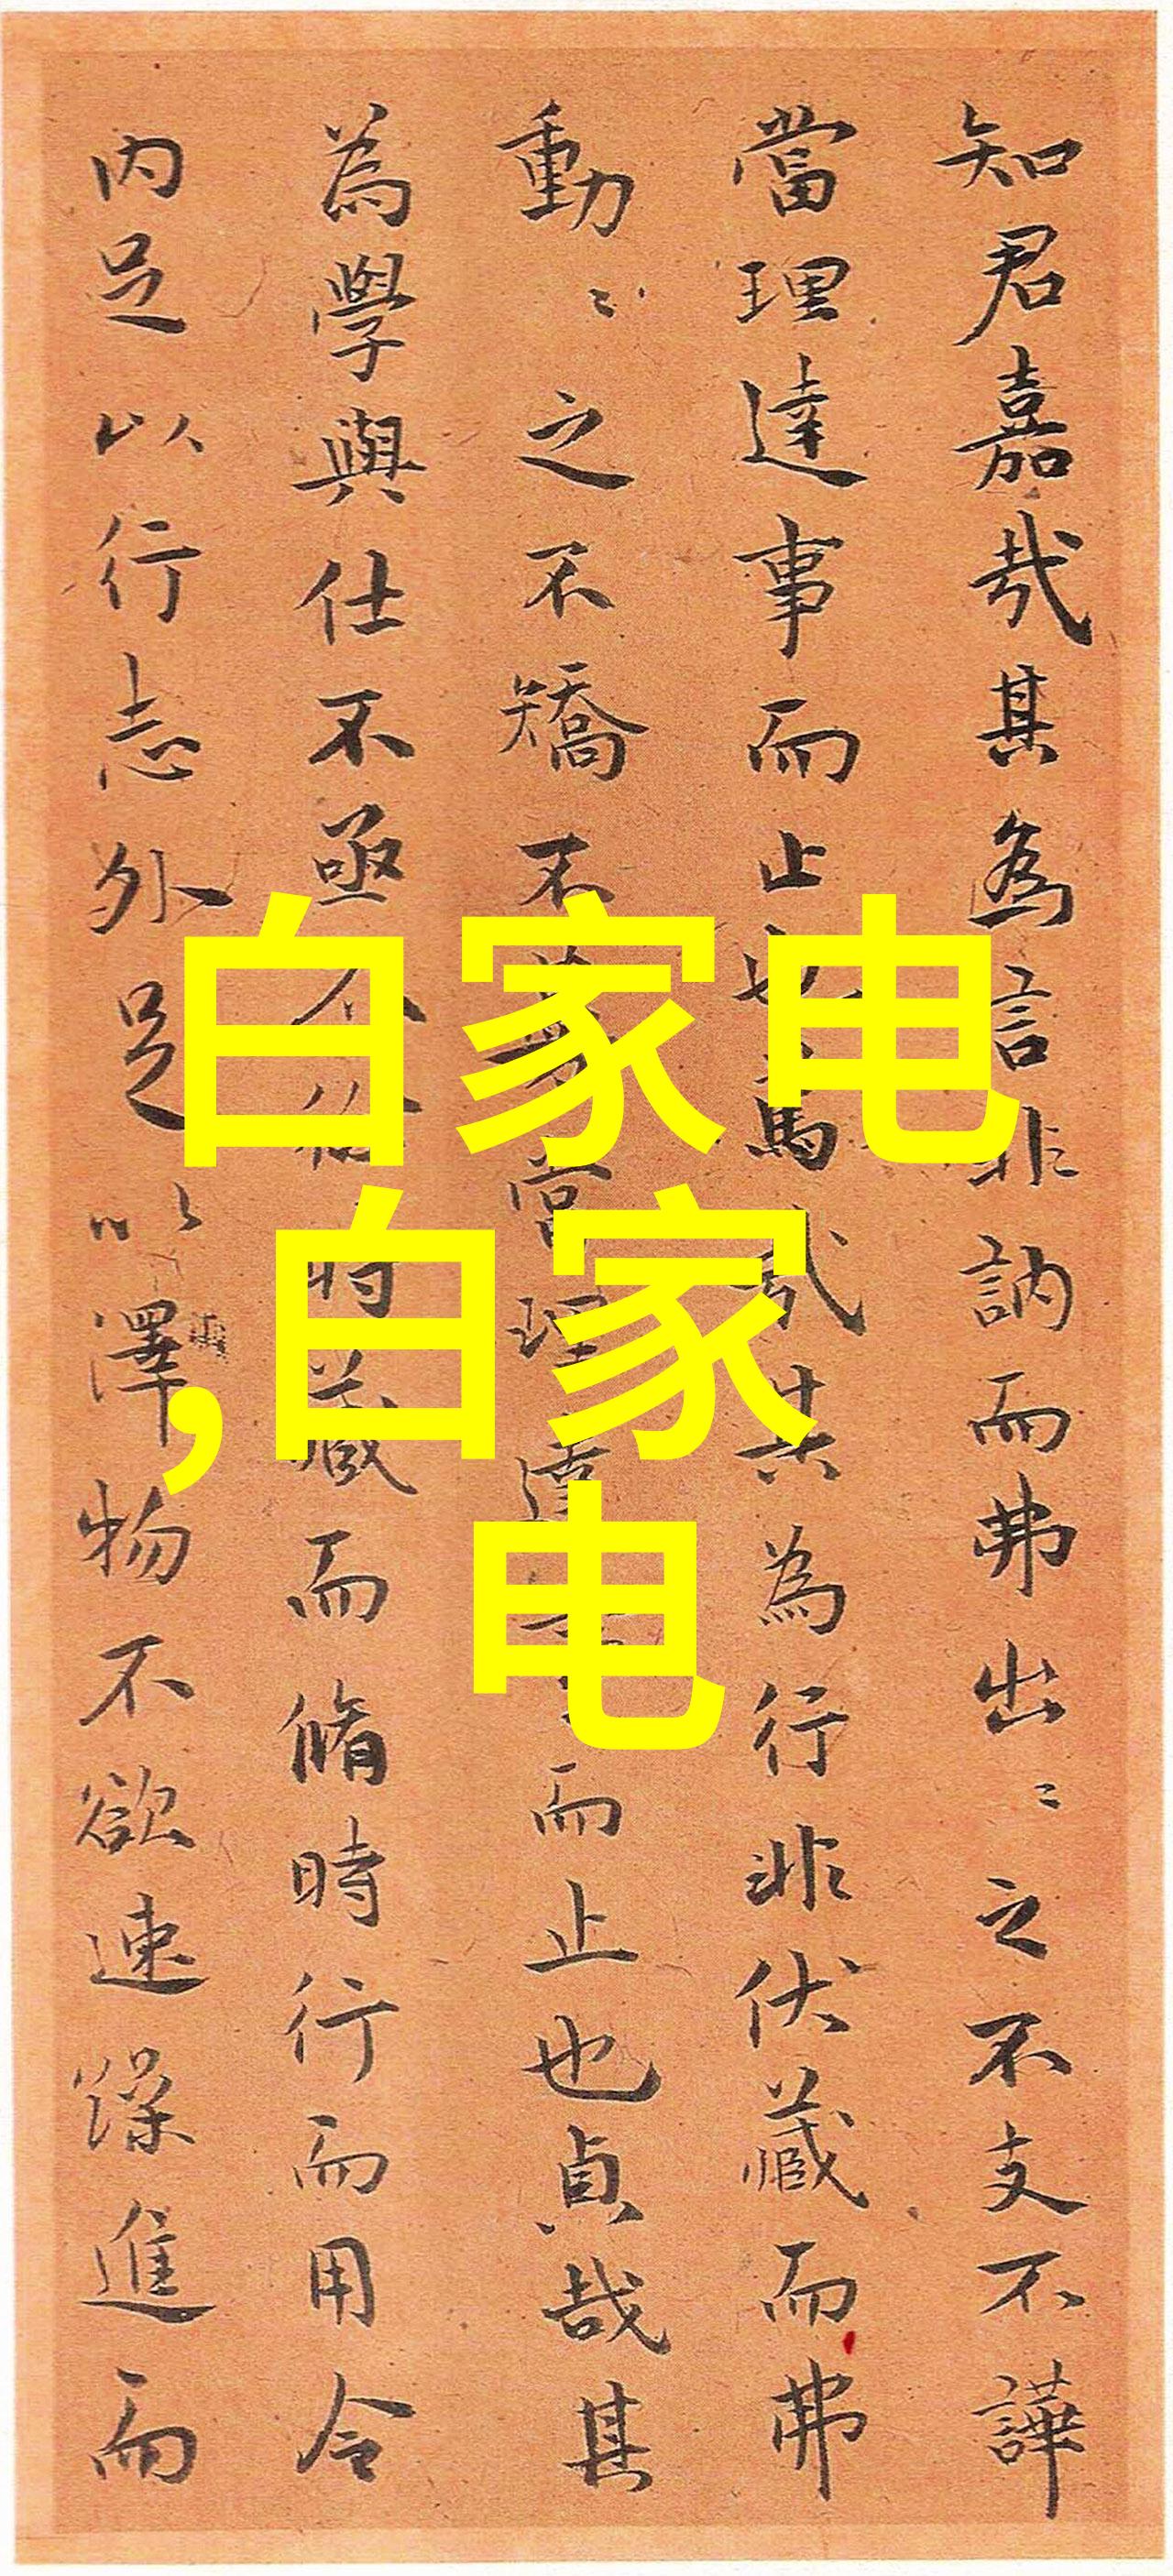 知君嘉哉其為言非訥而弗出〻之不支不譁
當理達事而止也篤哉其為行非伏藏而弗
動〻之不矯不當理達事而止也貞哉其
為學與仕不亟不徐時藏而脩時行而用令
内足以行志外足以澤物不欲速躁進而
白家电
,白家
电